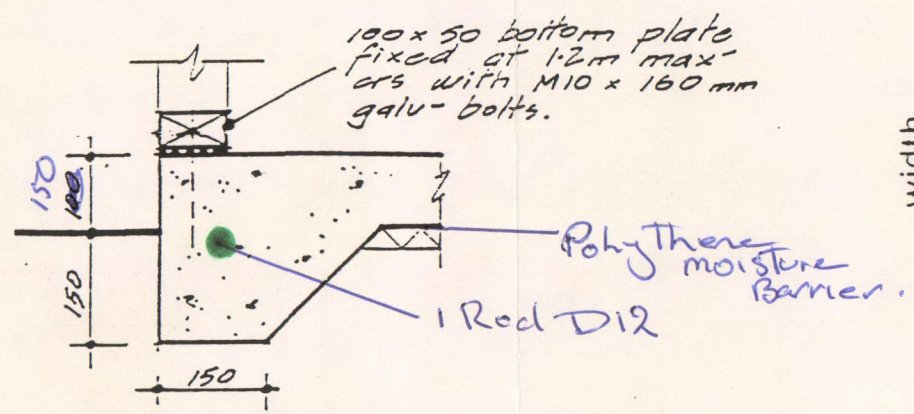 100 x 50 bottom plate
fixed at 1.2m max-
crs with M10 x 160 mm
galv- bolts.
width
150
100
150
150
Polythene
moisture
Barrier.
1 Rod D12